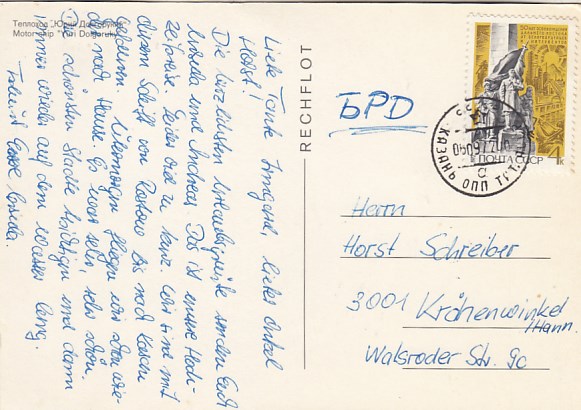 Теплоход „Юрий Долгорукий"
Motor ship "Yuri Dolgoruki"
Liebe Tante Irmgard, lieber Onkel
Horst!
Die herzlichsten Urlaubsgrüße senden Euch
und Andreas. Das ist unsere Hoch-
zeitsreise. Leider viel zu kurz. Wir sind mit
diesem Schiff von Rostow bis nach Kasan
gefahren. Übermorgen fliegen wir schon wie-
der nach Hause. Es war sehr, sehr schön.
Die schönsten Städte besichtigen und dann
immer wieder auf dem Wasser lang.
RECHFLOT
БРД
ПОЧТА СССР
4к
КАЗАНЬ ОПП
Herrn
Horst Schreiber
3001 Krähenwinkel
/Hann.
Walsroder Str. 9c